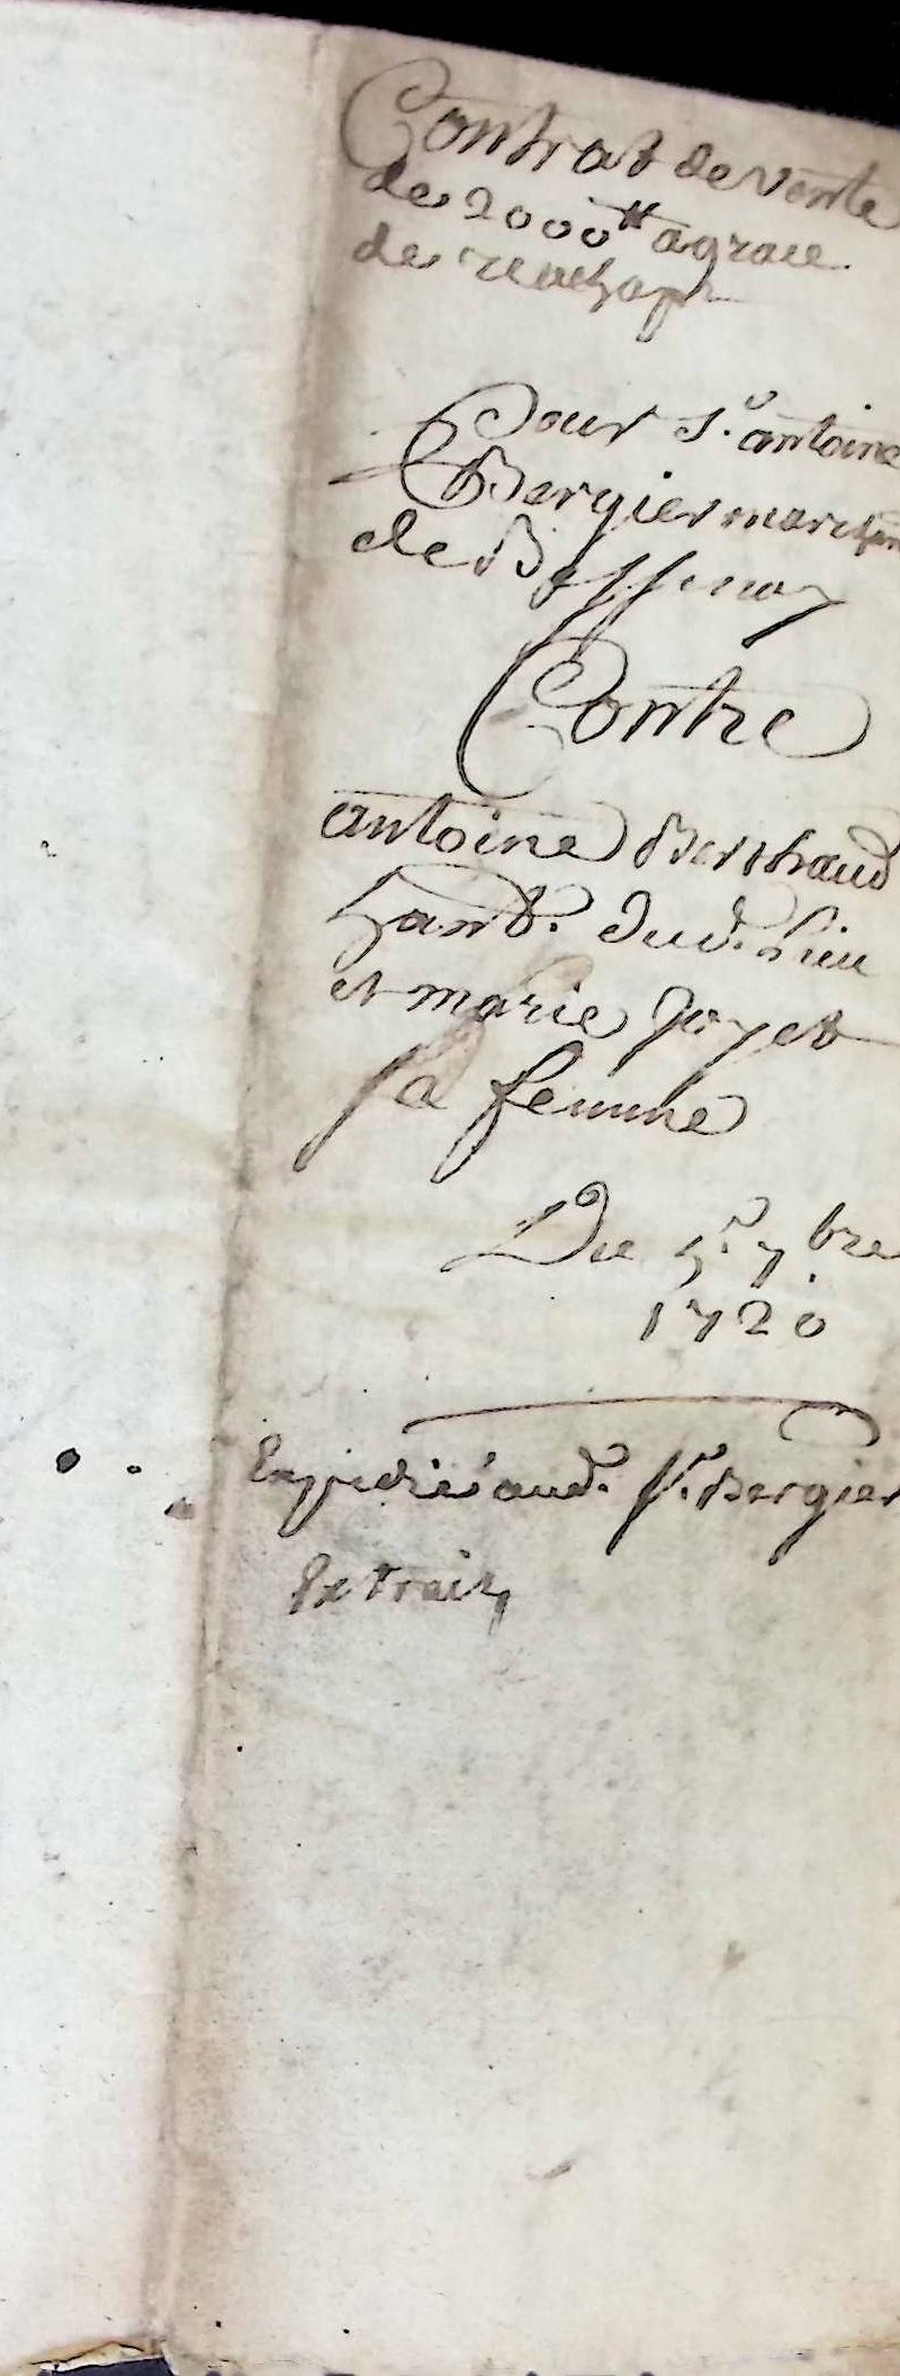 Contrat de vente
de 2000 ₶ a grace
de reachapt
Pour Sr. antoine
Bergier marchan
de Boffsenay
Contre
antoine Berthaud
habt. dud. Lieu
et marie Joyet
sa femme
Du 5e 7bre
1720
Expedié aud. Sr. Bergier
Extrait